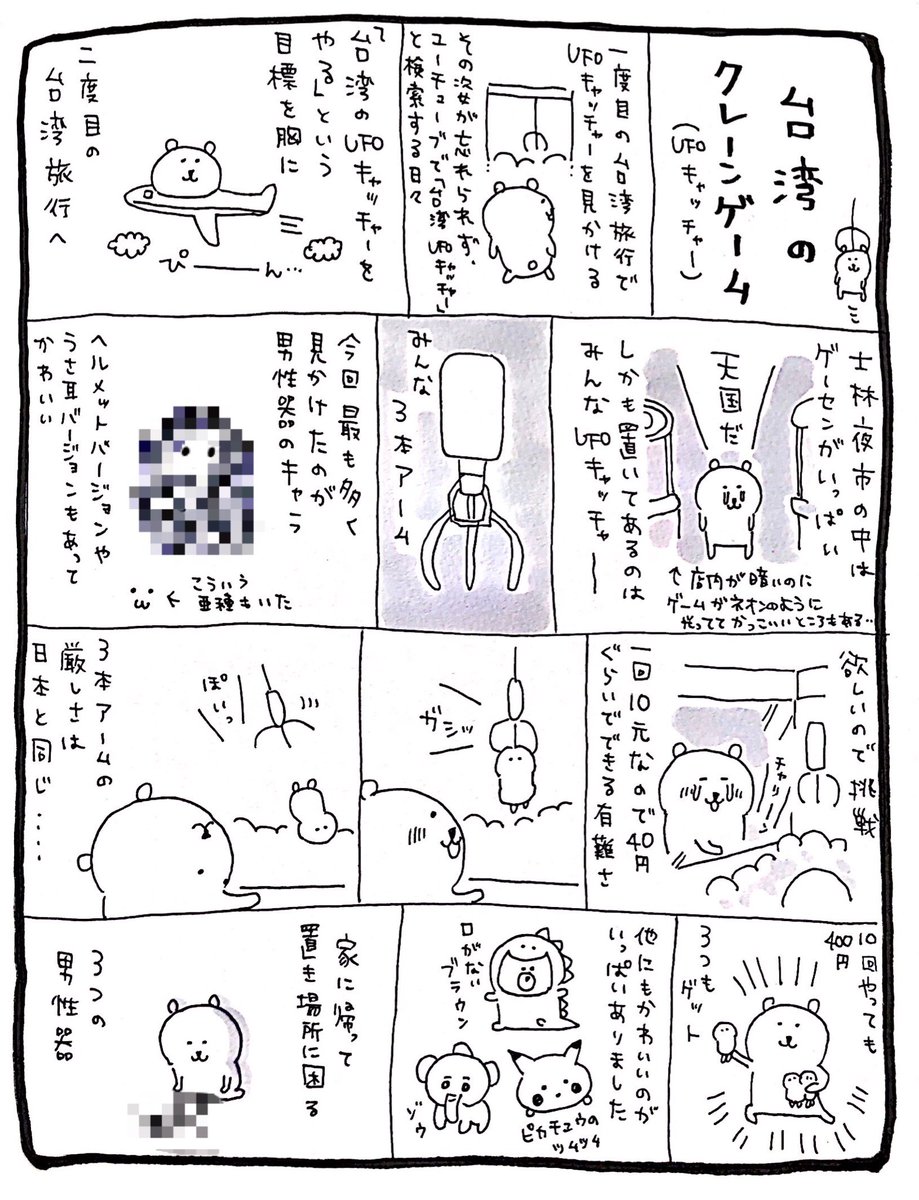 台湾の
クレーンゲーム
(UFOキャッチャー)
一度目の台湾旅行で
UFOキャッチャーを見かける
その姿が忘れられず、
ユーチューブで「台湾UFOキャッチャー」
と検索する日々
「台湾のUFOキャッチャーを
やる」という
目標を胸に
二度目の
台湾旅行へ
ぴーーん…
士林夜市の中は
ゲーセンがいっぱい
天国だ
しかも置いてあるのは
みんなUFOキャッチャー
↑店内が暗いのに
ゲームがネオンのように
光っててかっこいいところもある…
みんな
3本アーム
今回最も多く
見かけたのが
男性器のキャラ
ヘルメットバージョンや
うさ耳バージョンもあって
かわいい
こういう
亜種もいた
欲しいので挑戦
チャリーン
一回10元なので40円
ぐらいでできる有難さ
ガシッ
ぽいっ
3本アームの
厳しさは
日本と同じ....
10回やっても
400円
3つもゲット
他にもかわいいのが
いっぱいありました
口がない
ブラウン
ゾウ
ピカチュウの
ツムツム
家に帰って
置き場所に困る
3つの
男性器